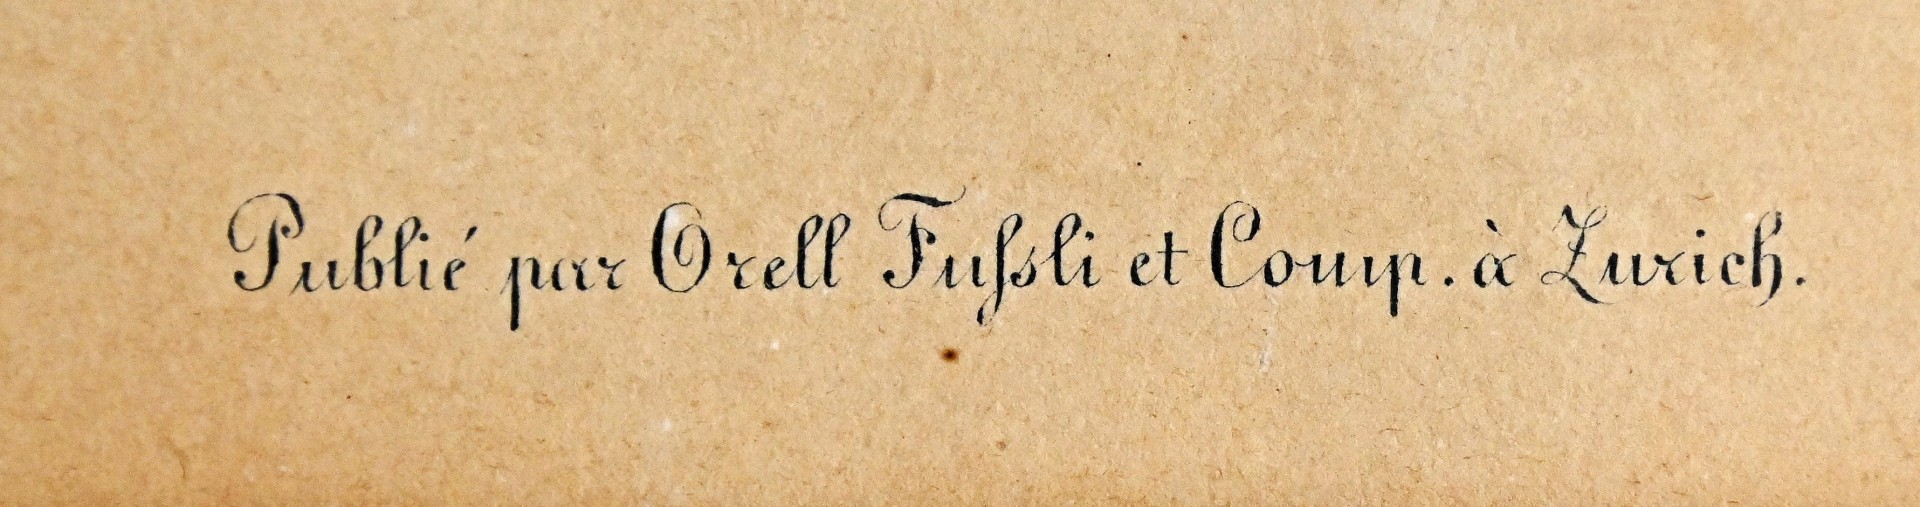 Publié par Orell Fuſsli et Comp. à Zurich.